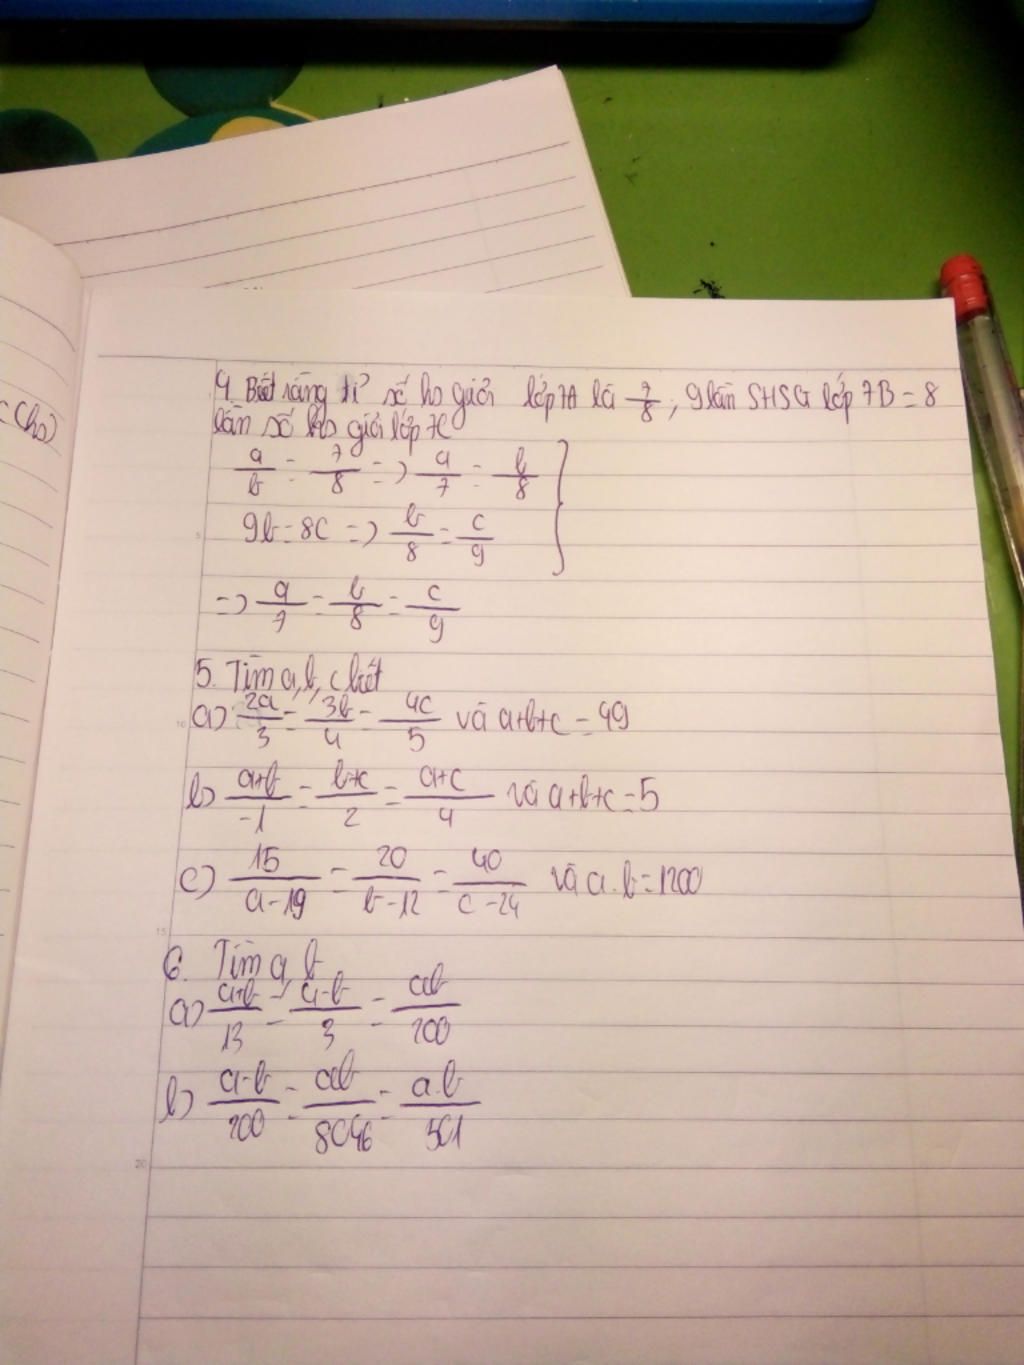 c(hs)
4. Biết rằng tỉ số hs giỏi lớp 7A là 7/8; 9 lần SHSG lớp 7B = 8
lần số hs giỏi lớp 7C
a/b = 7/8 => a/7 = b/8
9b = 8c => b/8 = c/9
=> a/7 = b/8 = c/9
5. Tìm a, b, c biết
a) 2a/3 = 3b/4 = 4c/5 và a+b+c = 49
b) a+b/-1 = b+c/2 = a+c/4 và a+b+c = 5
c) 15/a-19 = 20/b-12 = 40/c-24 và a.b = 1200
6. Tìm a, b
a) a+b/13 = a-b/3 = ab/200
b) a-b/200 = ab/8046 = a.b/501